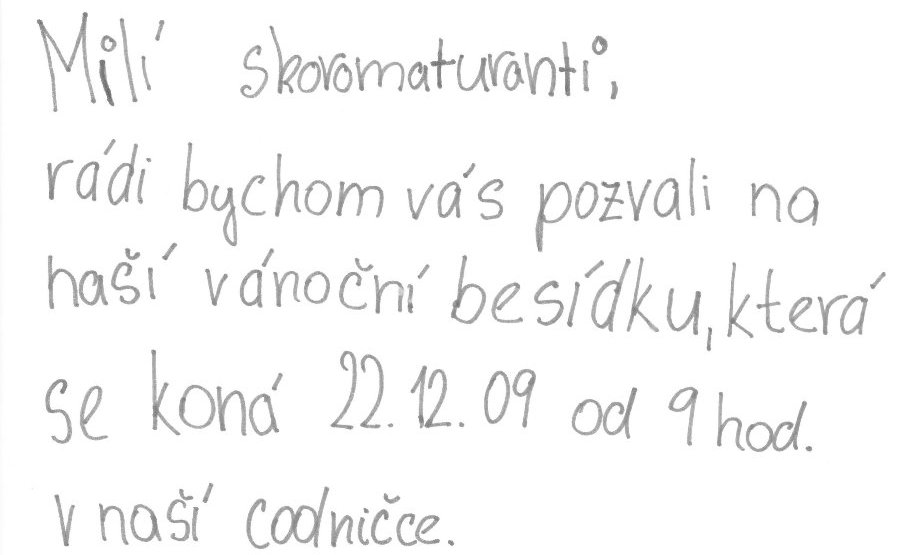 Milí skoromaturanti,
rádi bychom vás pozvali na
naší vánoční besídku, která
se koná 22.12.09 od 9 hod.
v naší codničce.